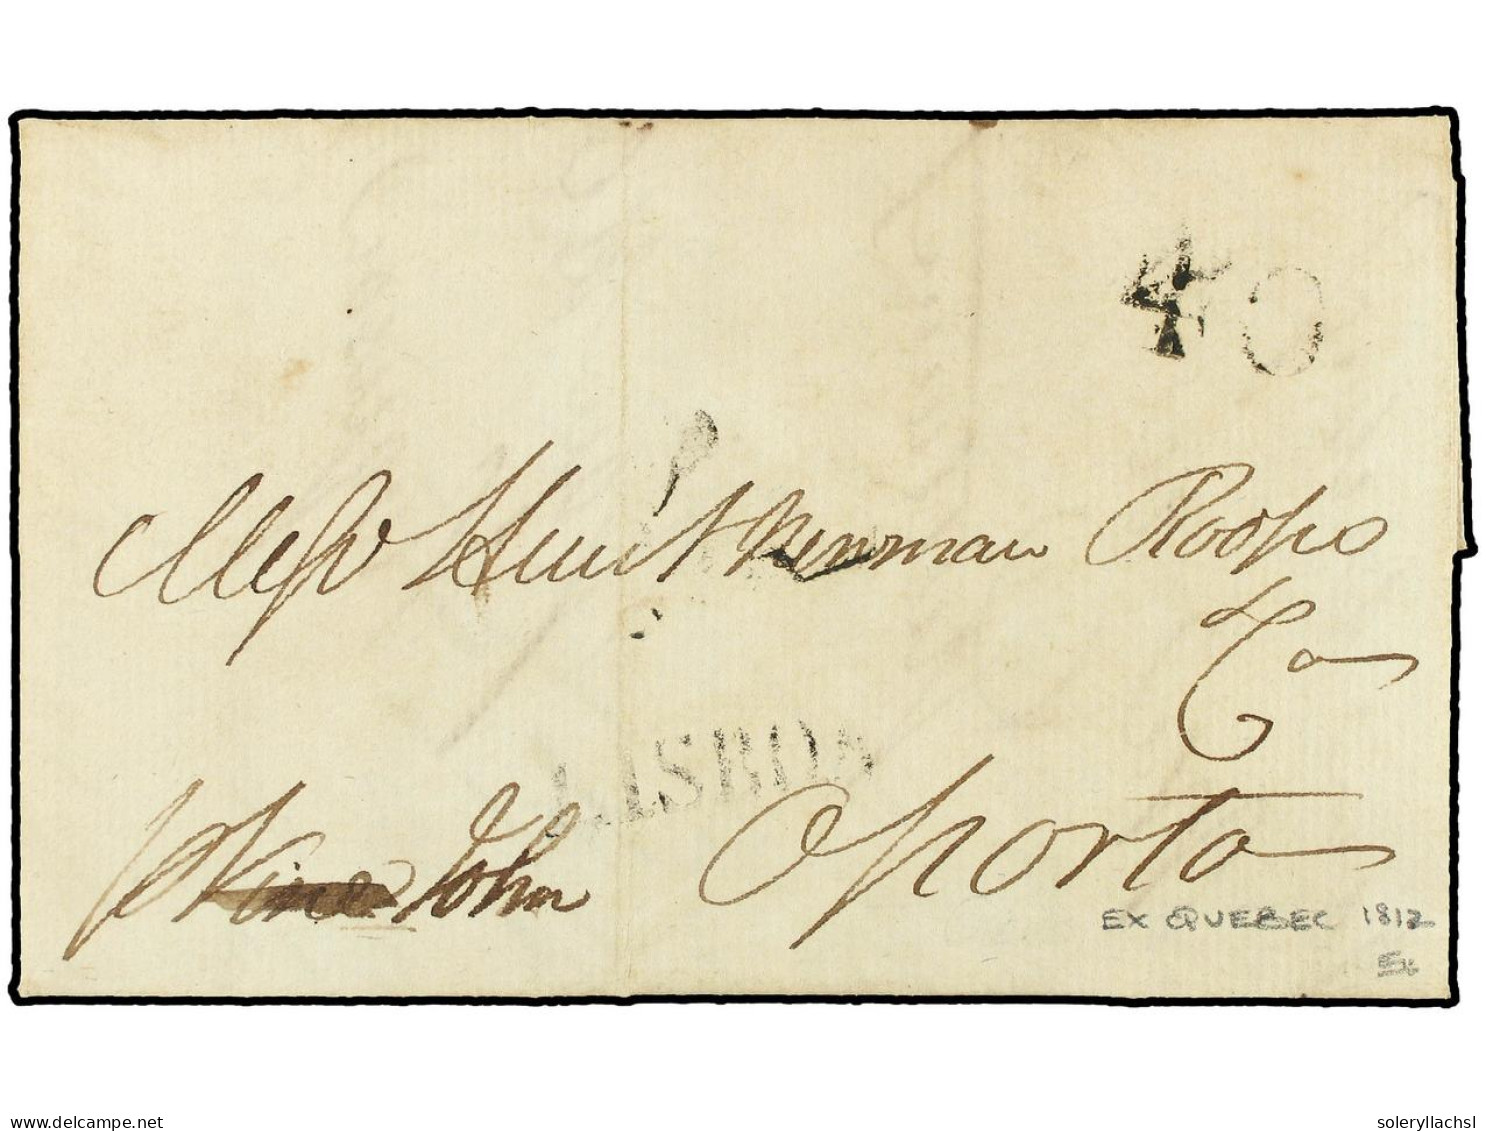 40
Messrs Hunt Newman Roope
& Co
LISBOA
Oporto
John
EX QUEBEC 1812
delcampe.net
soleryllachsl